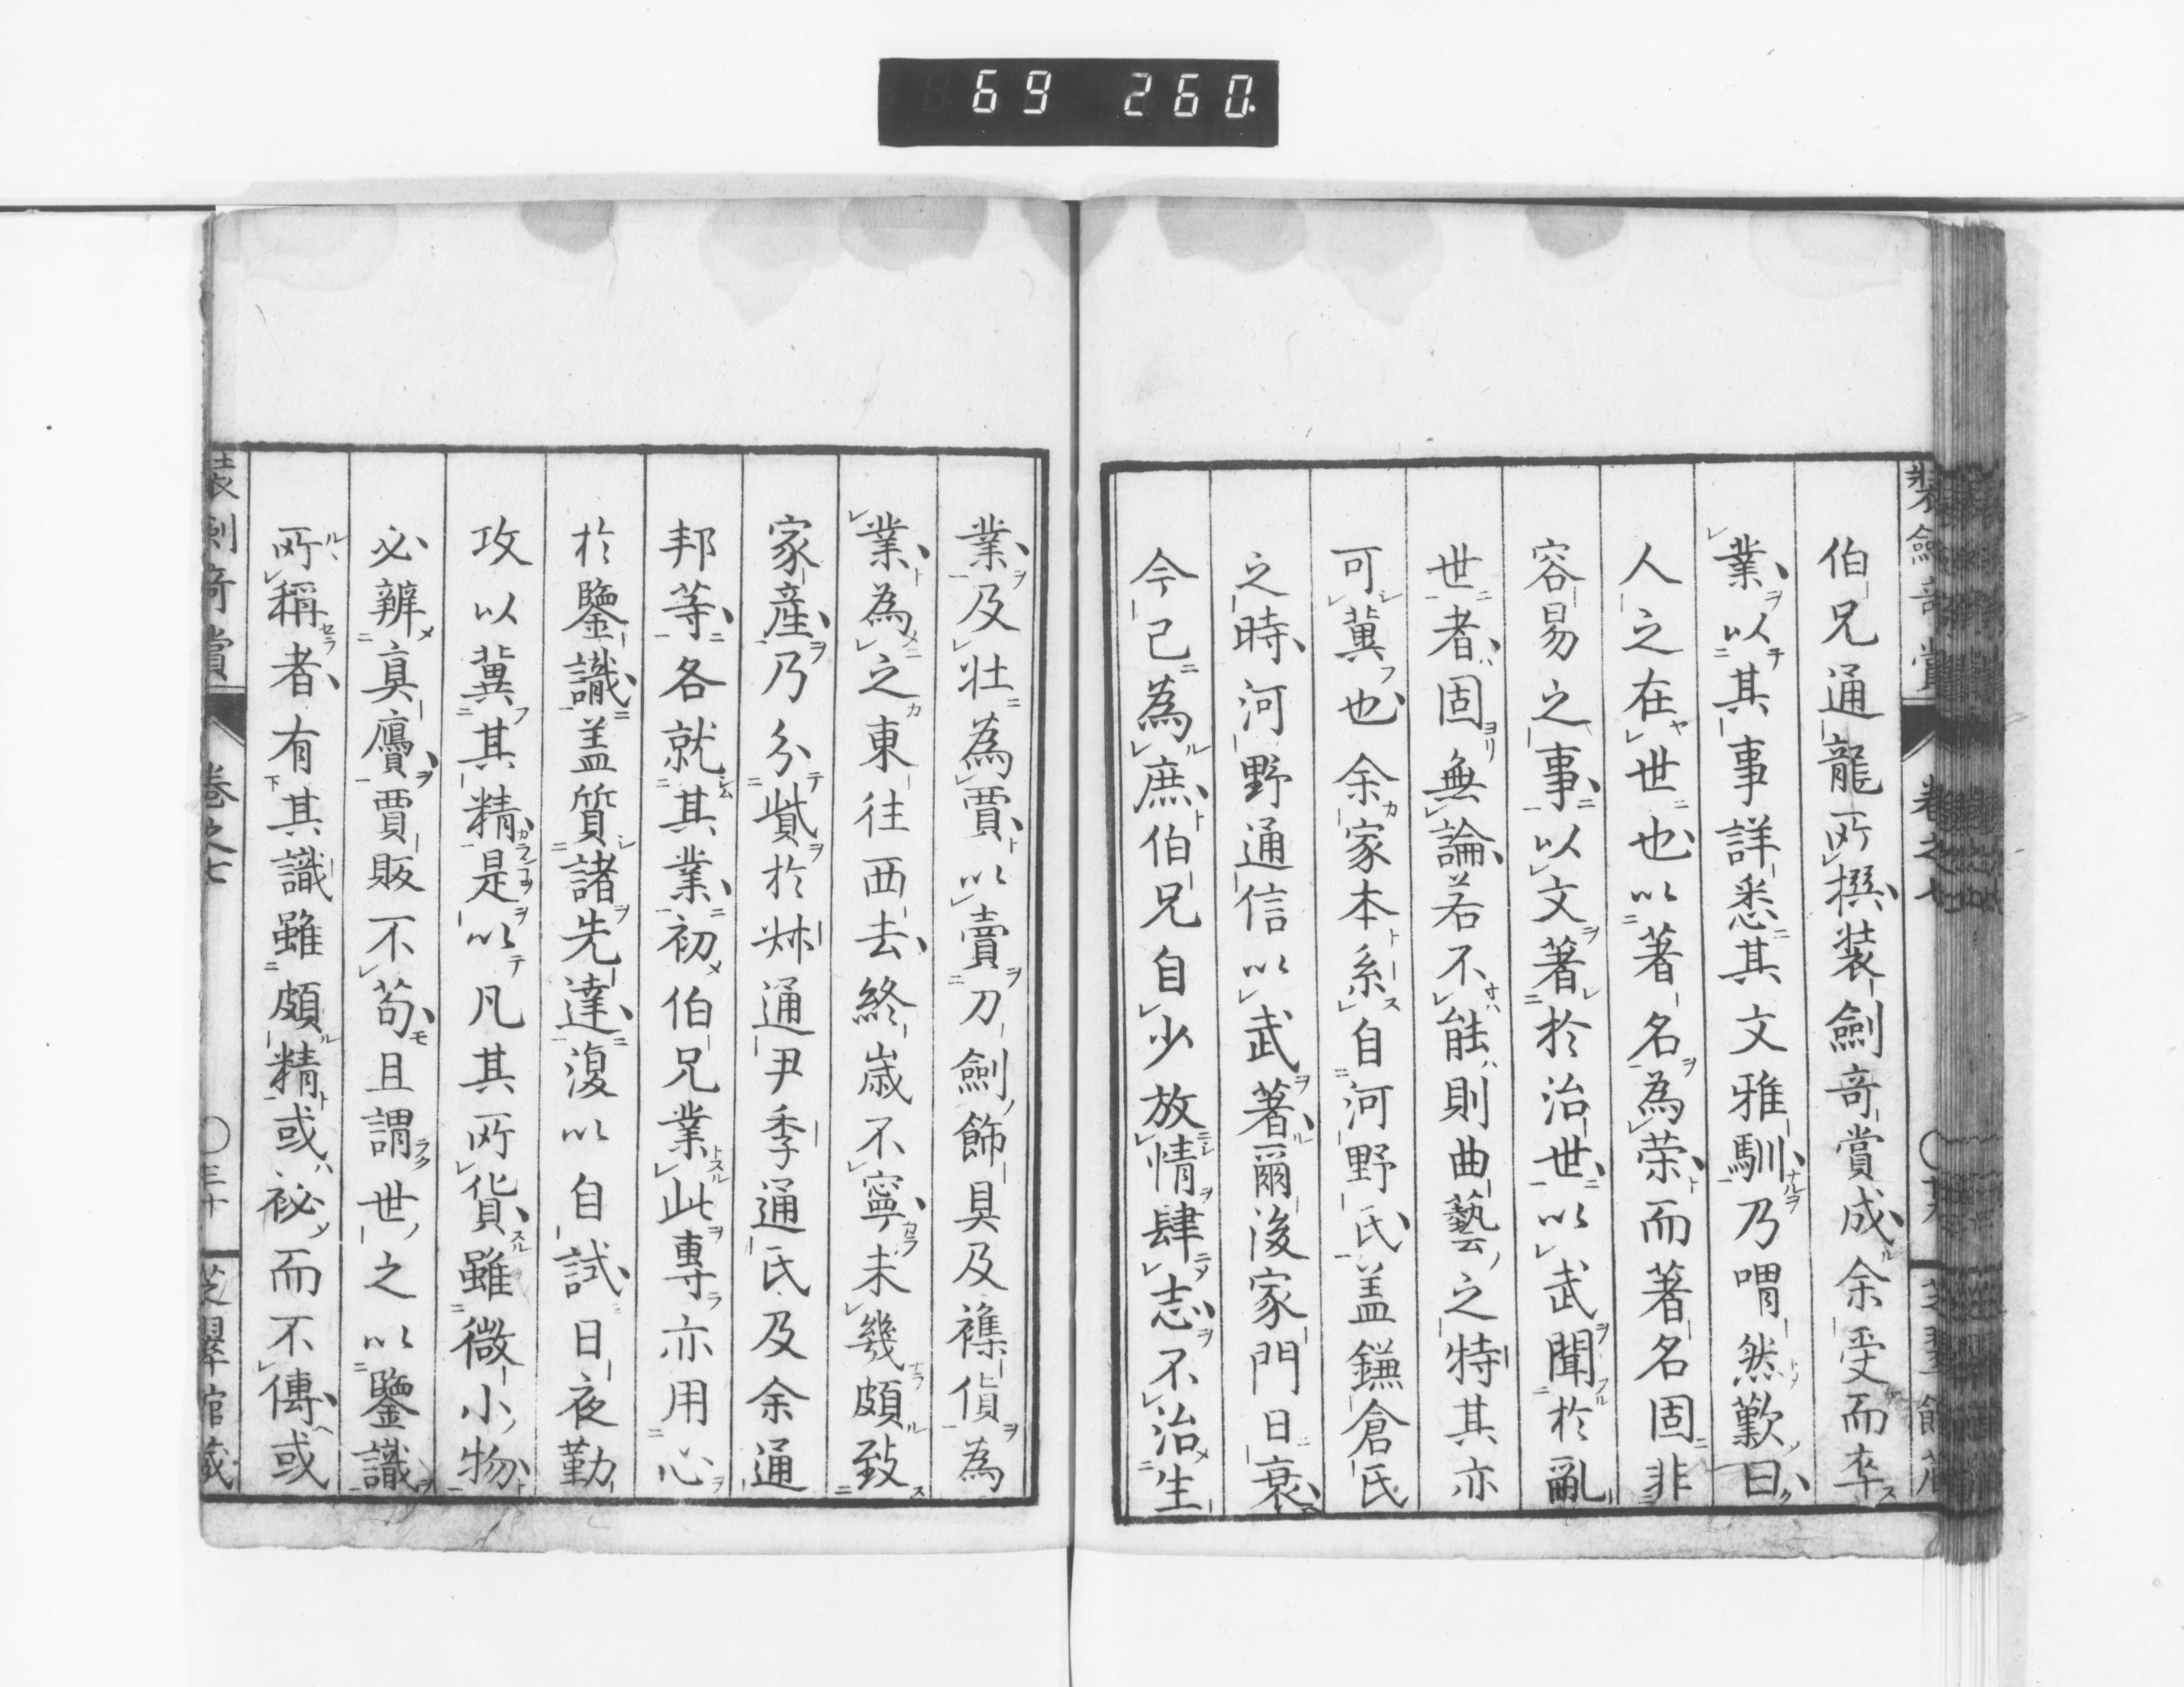 69 260.
伯兄通龍所撰装劍奇賞成余受而卒
業以其事詳悉其文雅馴乃喟然歎曰
人之在世也以著名為荣而著名固非
容易之事以文著於治世以武聞於亂
世者固無論若不能則曲藝之特其亦
可冀也余家本系自河野氏盖鎌倉氏
之時河野通信以武著爾後家門日衰
今已為庶伯兄自少放情肆志不治生
業及壮為賈以賣刀劍飾具及襍貨為
業為之東往西去終歳不寧未幾頗致
家産乃分貲於弟通尹季通氏及余通
邦等各就其業初伯兄業此專亦用心
於鑒識盖質諸先達復以自試日夜勤
攻以冀其精是以凡其所貨雖微小物
必辨真贋賈販不苟且謂世之以鑒識
所稱者有其識雖頗精或秘而不傳或
装劍奇賞 卷之七 三十 芝翠館藏